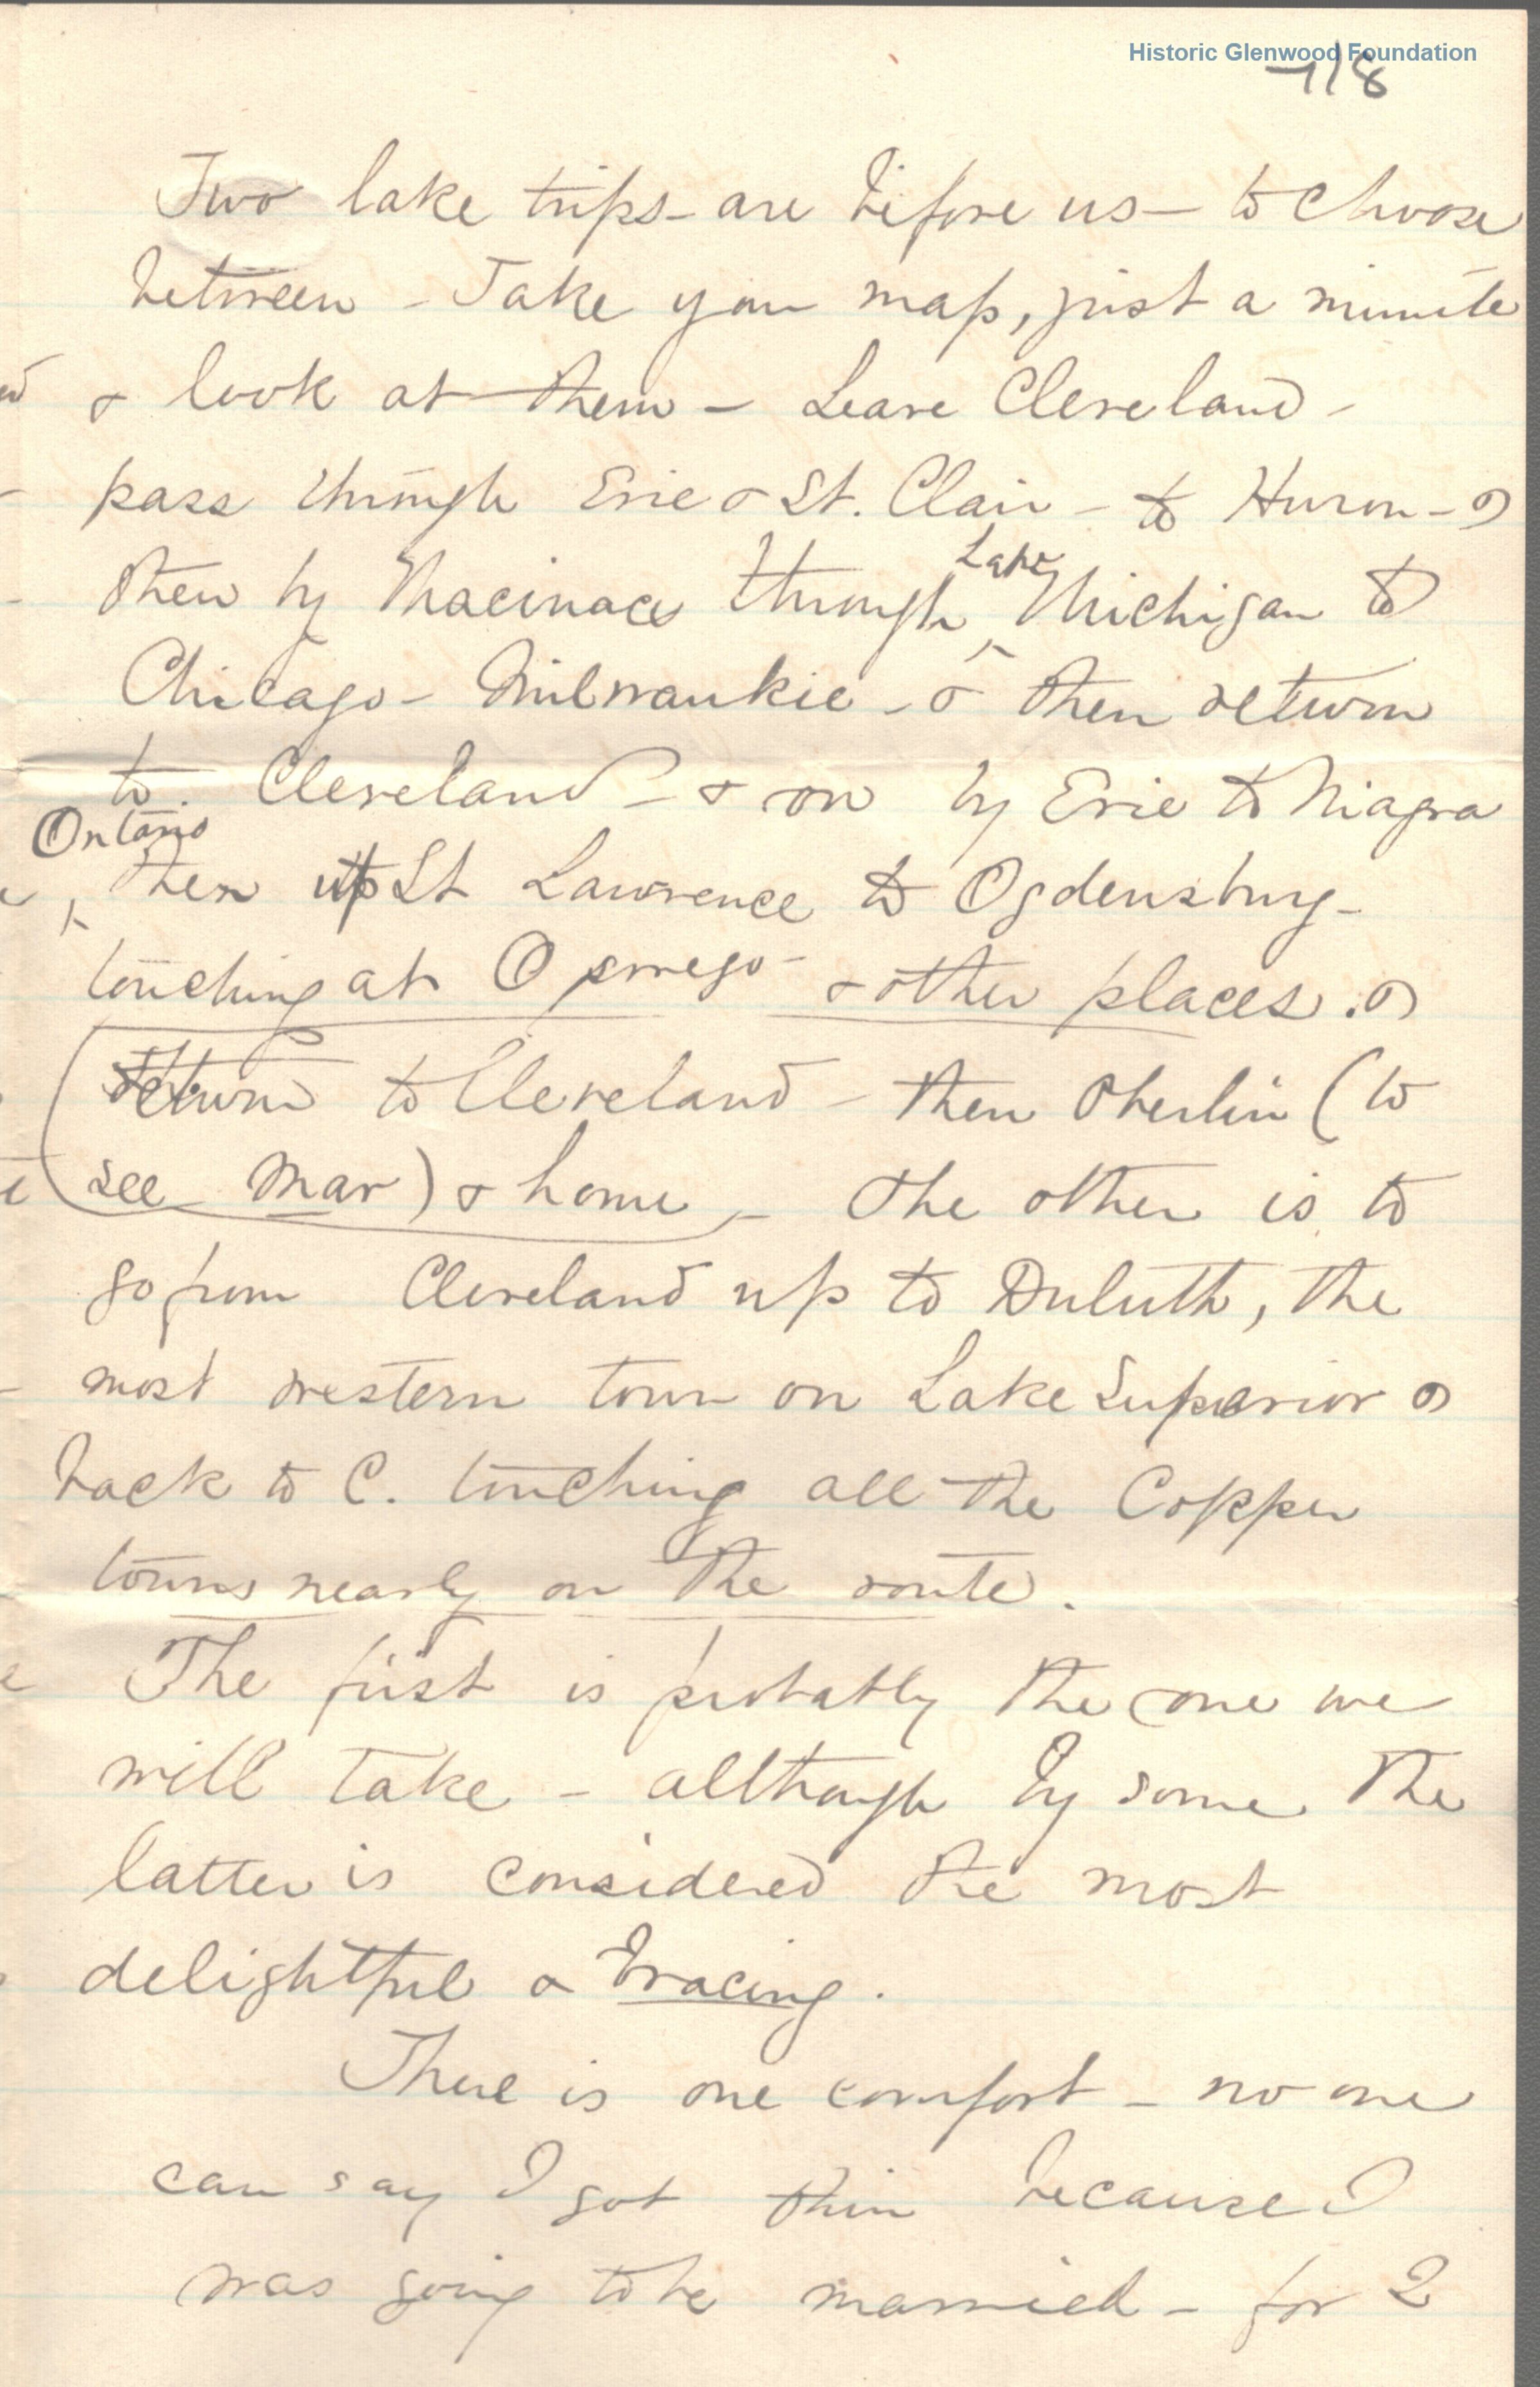 Historic Glenwood Foundation
7/8
Two lake trips - are before us - to choose
between - Take your map, just a minute
& look at them - Leave Cleveland -
pass through Erie & St. Clair - to Huron - &
then by Macinac through Lake Michigan to
Chicago - Milwaukie - & then return
to Cleveland - & on by Erie to Niagra
Ontario
then up St Lawrence to Ogdensburg -
touching at Oswego - & other places. &
return to Cleveland - then Oberlin (to
see Mar) & home - The other is to
go from Cleveland up to Duluth, the
most western town on Lake Superior &
back to C. touching all the Copper
towns nearly on the route.
The first is probably the one we
will take - although by some the
latter is considered the most
delightful & bracing.
There is one comfort - no one
can say I got thin because I
was going to be married - for 2